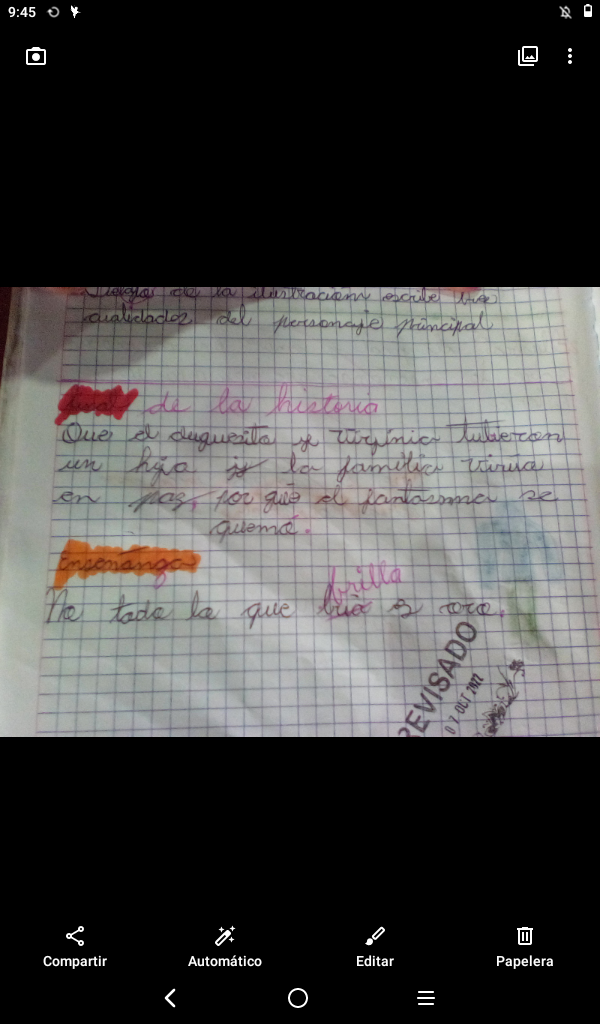 9:45
de la ilustración escribe tres
cualidades del personaje principal
Final de la historia
Que el duquesito y Virginia tuberon
un hijo y la familia vivia
en paz, por que el fantasma se
quemó.
Enseñanza
brilla
No todo lo que es oro.
REVISADO
07 OCT 2022
Compartir
Automático
Editar
Papelera